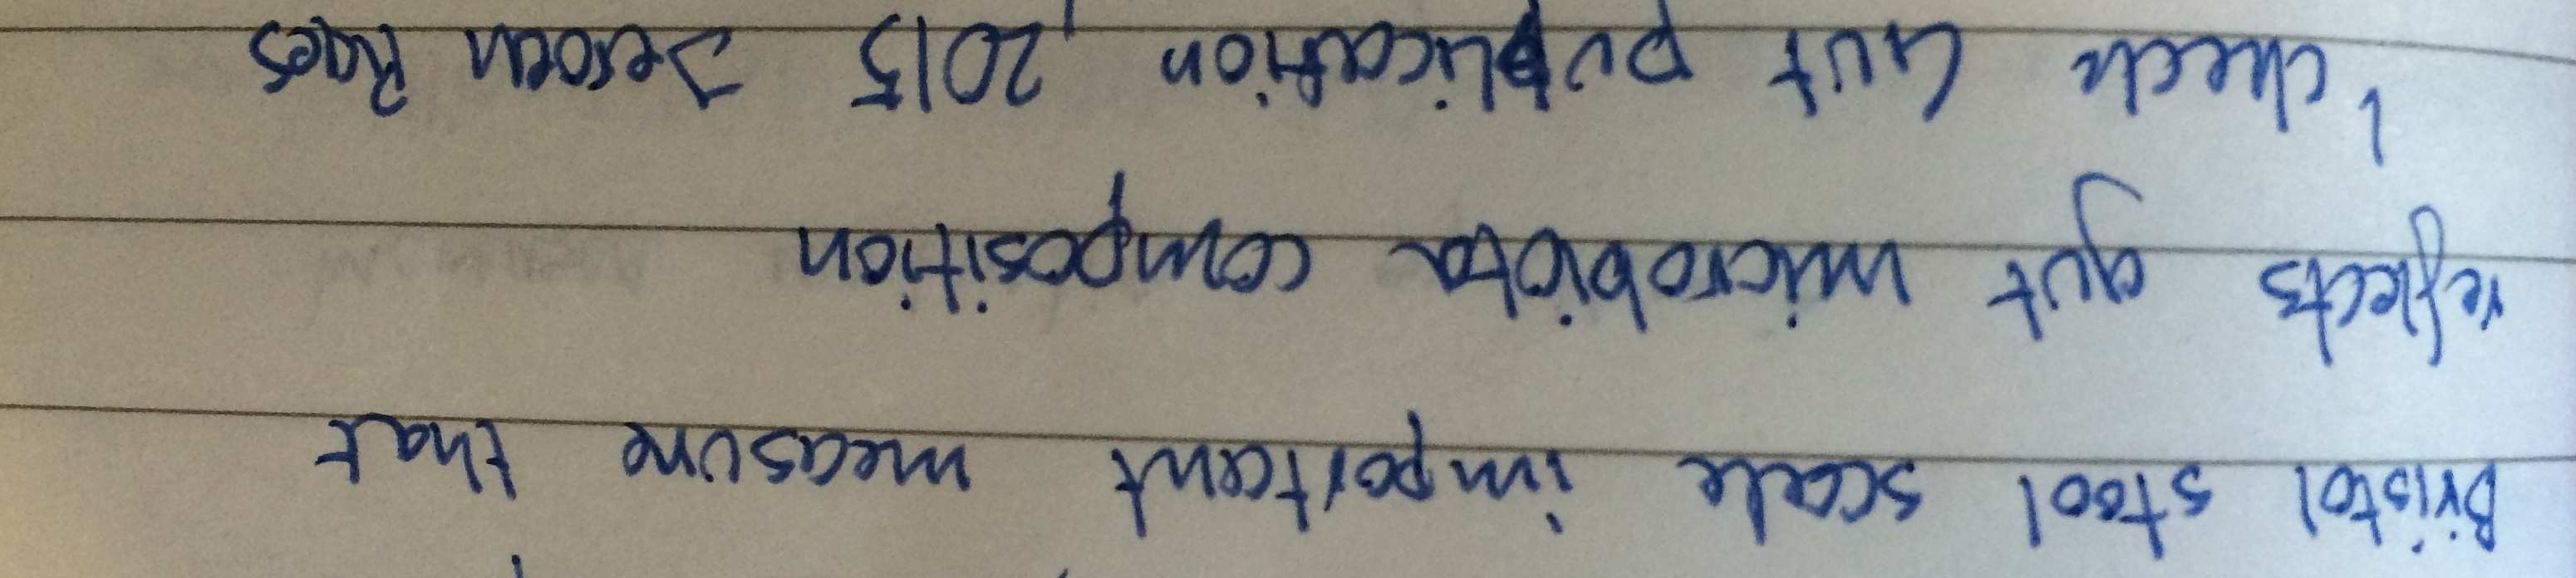 Bristol stool scale important measure that
reflects gut microbiota composition
, check Gut publication 2015 Jeroen Raes